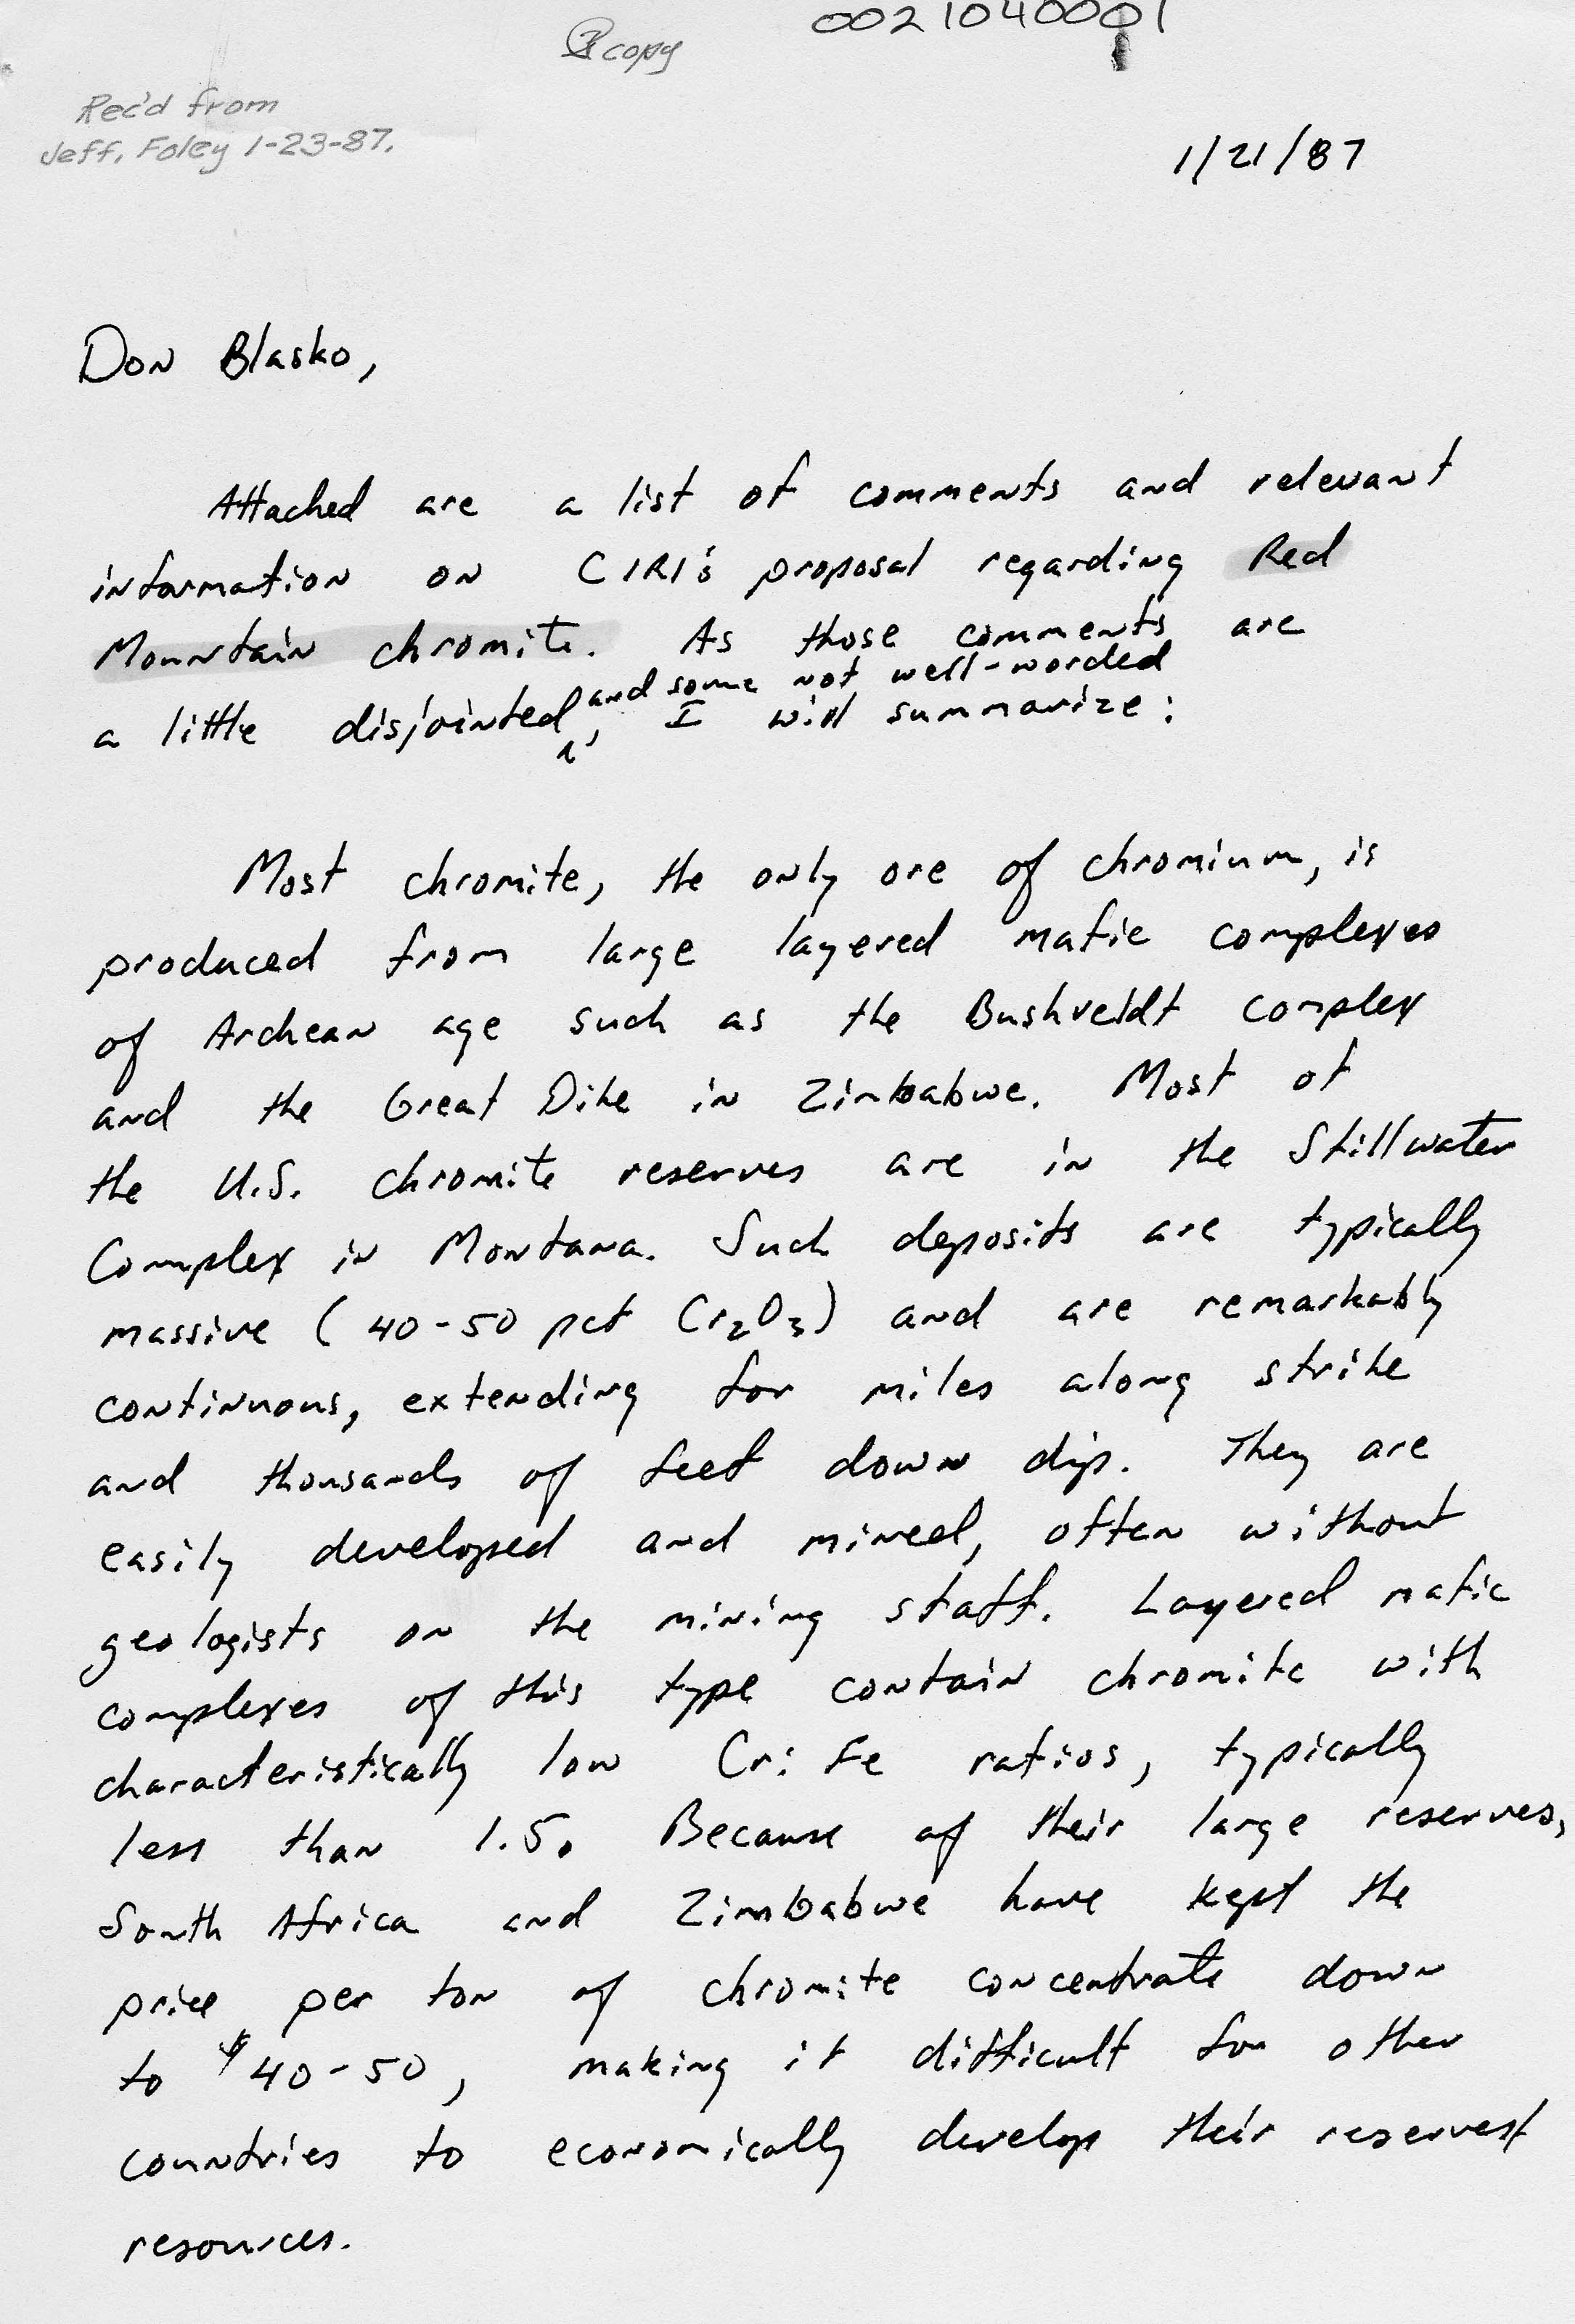 0021040001
copy
Rec'd from
Jeff. Foley 1-23-87.
1/21/87
Don Blasko,
Attached are a list of comments and relevant
information on CIRI's proposal regarding Red
Mountain chromite. As those comments are
and some not well-worded
a little disjointed, I will summarize:
Most chromite, the only ore of chromium, is
produced from large layered mafic complexes
of Archean age such as the Bushveldt complex
and the Great Dike in Zimbabwe. Most of
the U.S. chromite reserves are in the Stillwater
Complex in Montana. Such deposits are typically
massive (40-50 pct Cr₂O₃) and are remarkably
continuous, extending for miles along strike
and thousands of feet down dip. They are
easily developed and mined, often without
geologists on the mining staff. Layered mafic
complexes of this type contain chromite with
characteristically low Cr:Fe ratios, typically
less than 1.5. Because of their large reserves,
South Africa and Zimbabwe have kept the
price per ton of chromite concentrate down
to $40-50, making it difficult for other
countries to economically develop their reserves/
resources.